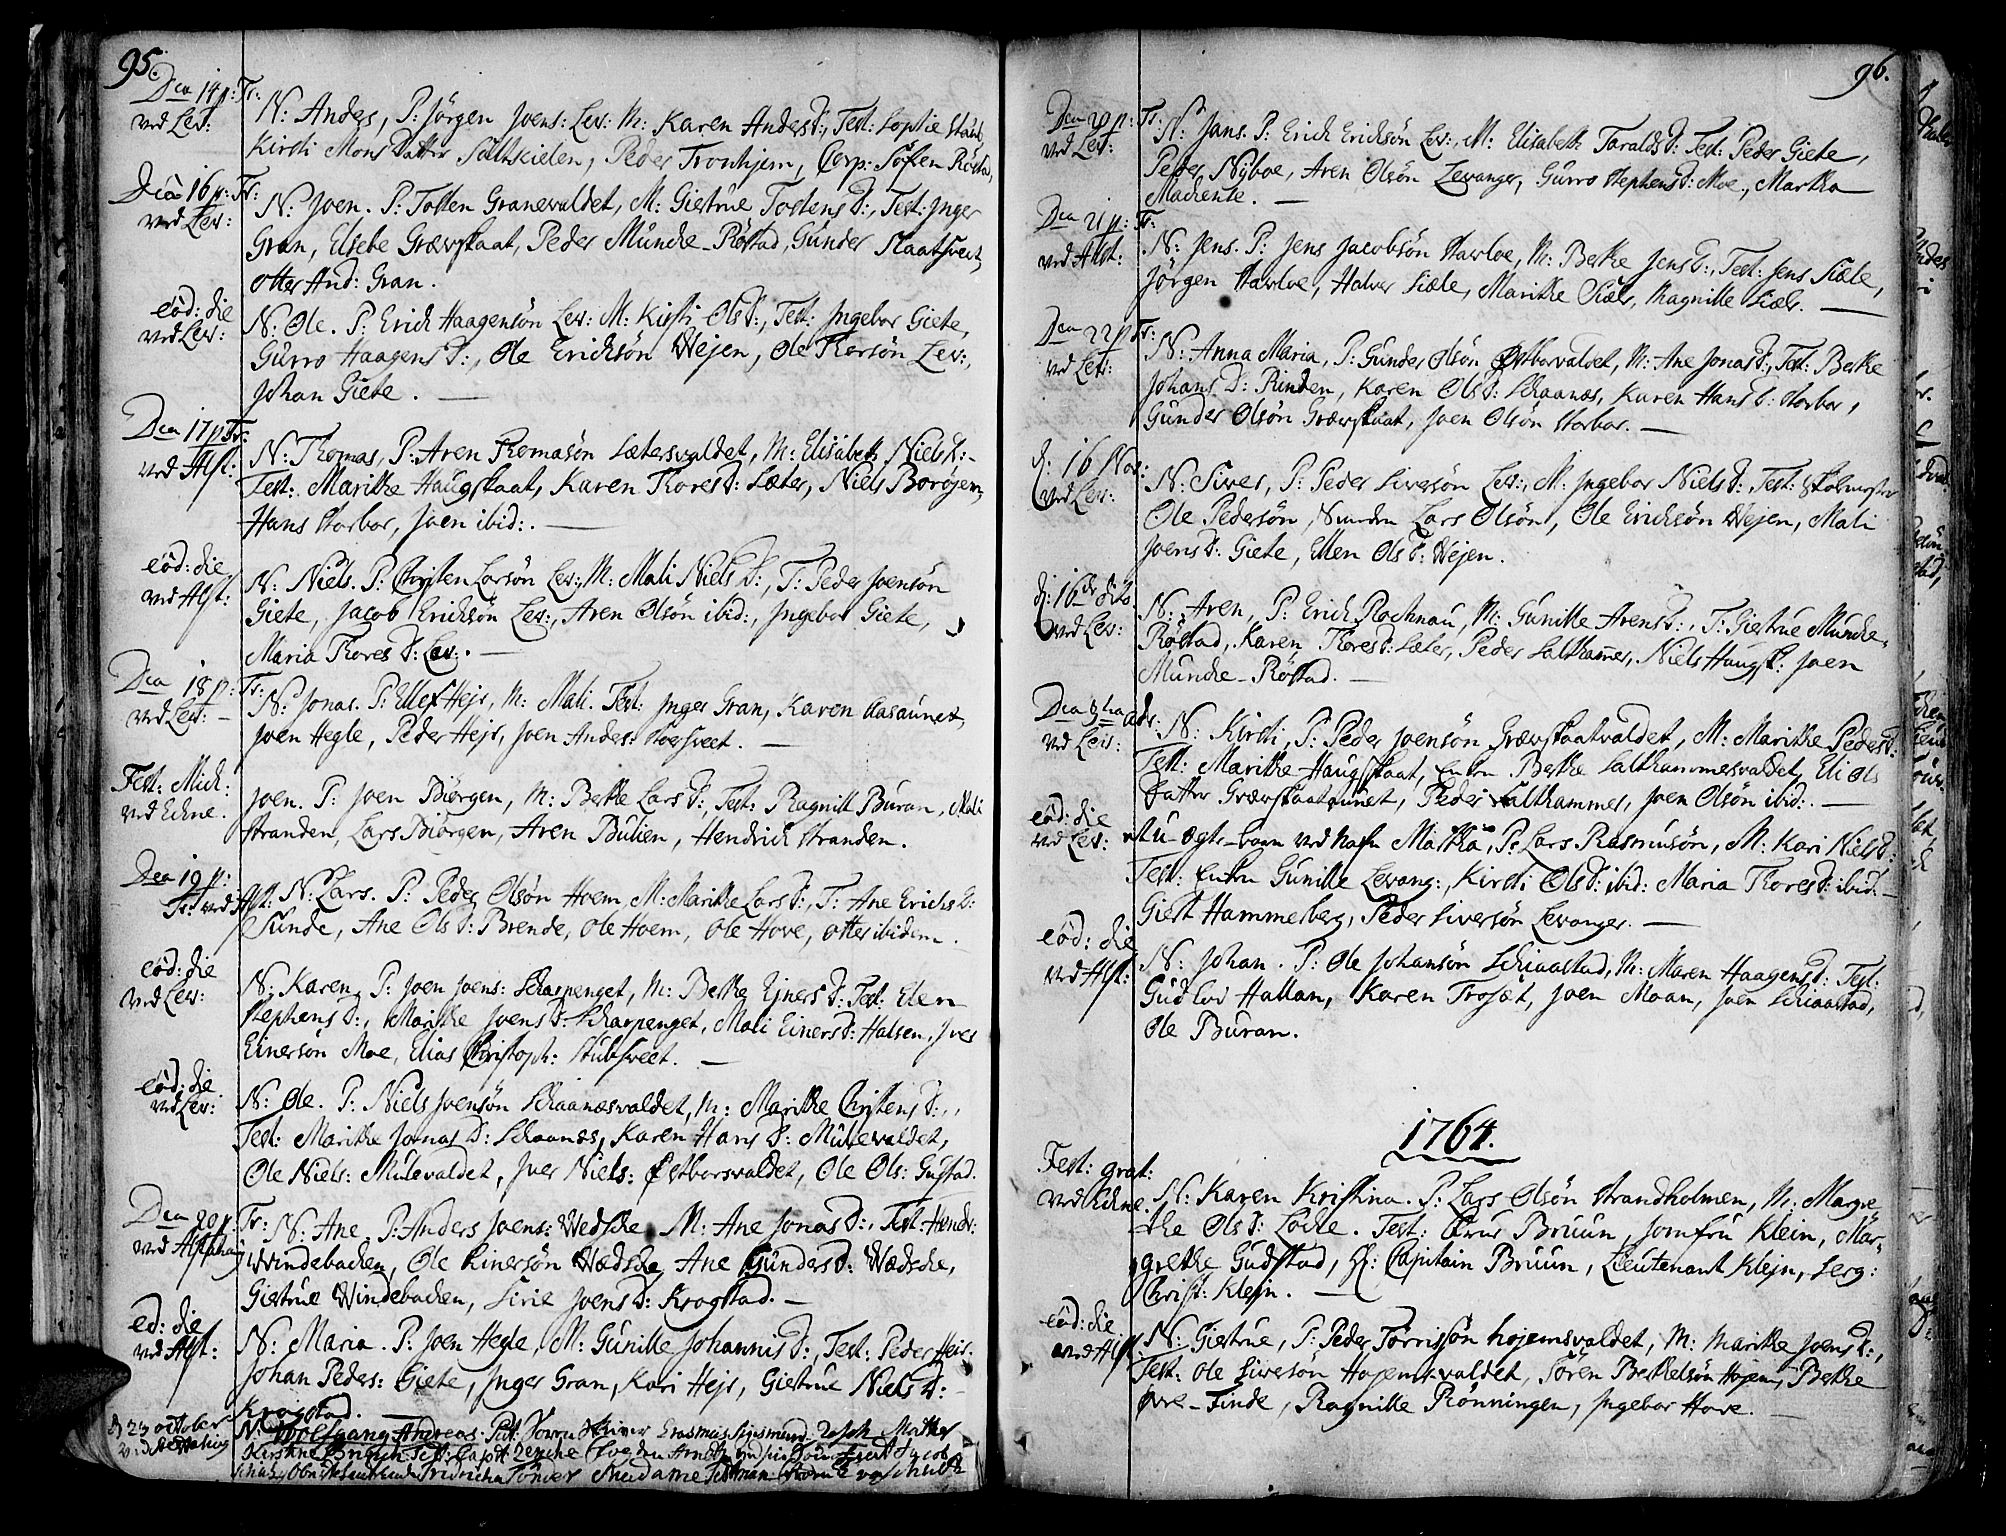 95.
Dca 14 p: Tr:
ved Lev:
N: Anders, P: Jörgen Joens: Lev: M: Karen Andersd:, Test: Sophie
Kirsti Mons Datter Salthielen, Peder Tronhjem, Corp: Röstad,
Dca 16 p: Tr:
ved Lev:
N: Joen. P: Totten Granevaldet, M: Giertrue Tostens D:, Test: Inger
Gran, Elsebe Grævskaat, Peder Müncke-Röstad, Gunder
Otter And: Gran.
eod: die
ved Lev:
N: Ole. P: Erich Haagensön Lev: M: Kirsti Ols D:, Test: Ingebor Giete,
Gurro Haagens D:, Ole Ericksön Wejen, Ole Thorsön Lev:,
Johan Giete. —
Dca 17 p Tr:
ved Alst:
N: Thomas, P: Aren Thomasön Lætersvaldet, M: Elisabeth Niels D:-
Test: Marithe Haugskaat, Karen Thores D: Læter, Niels Borøjen,
Hans Storbor, Joen ibid:. —
eod: die
ved Alst:
N: Niels. P: Christen Larsön Lev: M: Mali Niels D:, T: Peder Joensön
Giete, Jacob Ericksön Lev:, Aren Olsön ibid:, Ingebor Giete,
Maria Thores D: Lev:. —
Dca 18 p: Tr:
ved Lev: —
N: Jonas. P: Ellef Hejr, M: Mali. Test: Inger Gran, Karen Aasaunet,
Joen Hegle, Peder Hejr, Joen Anders: —
Fest: Mich:
ved Eckne.
Joen. P: Joen Biörgen, M: Berthe Lars D:, Test: Ragnill Buran, Mali
Stranden, Lars Biörgen, Aren Bulien, Hendrich Stranden.
Dca 19 p:
Tr: ved Alst:
N: Lars. P: Peder Olsön Hoem, M: Marithe Lars D:, T: Ane Erichs D:
Sunde, Ane Ols D: Brende, Ole Hoem, Ole Hove, Otter ibidem.
eod: die
ved Lev:
N: Karen, P: Joen Joens: Scharpenget, M: Berthe Ejners D: Test: Elen
Stephens D:, Marithe Joens D: Scharpenget, Mali Einers D: Halsen, Iver
Einersön Moe, Elias Christoph: Stubsveet. —
eod: die
ved Lev:
N: Ole. P: Niels Joensön Schaanæsvaldet, M: Marithe Christens D:,
Test: Marithe Jonas D: Schaanæs, Karen Hans D: Mulevaldet,
Ole Niels: Mulevaldet, Iver Niels: Østborsvaldet, Ole Ols: Gustad.
Dca 20 p: Tr:
ved Alstahaug
N: Ane. P: Anders Joens: Wedske, M: Ane Jonas D:, Test: Hendr:
Windebacken, Ole Einersön Wædske, Ane Gunders D: Wædscke,
Giertrue Windebacken, Sirie Joens D: Krogstad. —
eod: die
ved Alst:
N: Maria. P: Joen Hegle, M: Gunille Johannis D:, Test: Peder Heir.
Johan Peders: Giete, Inger Gran, Kari Hejr, Giertrue Niels D: —
Krogstad. —
d 23 october
N: Wolfgang Andreas. Pat: Soren Skriver Erasmus Sigismund Mother
Kirstine
Fridricha Tönder Madame
96.
Dca 20 p: Tr:
ved Lev:
N: Jans. P: Erich Ericksön Lev:, M: Elisabeth Taralds D: Test: Peder Giete,
Peder Nÿboe, Aren Olsön Levanger, Gurro Stephens D: Moe, Martha
Mackente. —
Dca 21 p: Tr:
ved Alst:
N: Jens. P: Jens Jacobsön Havloe, M: Berthe Jens D:, Test: Jens Siæle,
Jörgen Havloe, Halver Siæle, Marithe Siæle, Magnille Siæle. —
Dca 22 p Tr:
ved Lev:
N: Anna Maria, P: Gunder Olsön Østborvaldet, M: Ane Jonas D:, Test: Berthe
Johans D: Rinden, Karen Ols D: Schaanæs, Karen Hans D: Storbor,
Gunder Olsön Grævskaat, Joen Olsön Storbor. —
d: 16 Nov:
ved Lev:
N: Siver, P: Peder Siversön Lev:, M: Ingebor Niels D:, Test: Skolemester
Ole Pedersön, Lars Olsön, Ole Ericksön Wejen, Mali
Joens D: Giete, Ellen Ols D: Wejen.
d: 16de dito.
ved Lev:
N: Aren, P: Erich Rochnau, M: Gunille Arens D:, T: Giertrue Müncke-
Röstad, Karen Thores D: Læter, Peder Salthamer, Niels Haugsk: Joen
Müncke-Röstad. —
Dca 3tia adv:
ved Lev:
N: Kirsti, P: Peder Joensön Grævskaatvaldet, M: Marithe Peders D:
Test: Marithe Haugskaat, Entru Berthe Salthammesvaldet, Eli Ols
Datter Grævskaataunet, Peder Salthammer, Joen Olsön ibid:. —
eod: die
ved Lev:
et u-ægte-barn ved Nafn Martha, P: Lars Rasmusön, M: Kari Niels D:
Test: Entru Gunille Levang:, Kirsti Ols D: ibid: Maria Thores D: ibid: —
Giert Hammerberg, Peder Siversön Levanger. —
eod: die
ved Alst:
N: Johan. P: Ole Johansön Schiaastad, M: Maren Haagens D: Test:
Gudlov Hallan, Karen Trosæt, Joen Moan, Joen Schiaastad,
Ole Buran.
1764.
Fest: grat:
ved Eckne.
N: Karen Kristina. P: Lars Olsön Strandholmen, M: Margre-
the Ols D: Locke. Test: Frue Bruun, Jomfru Klein, Mar-
grethe Gudstad, Hr: Capitain Bruun, Lieutenant Klejn, Serg:
Christ: Klejn. —
eod: die
ved Alst:
N: Giertrue, P: Peder Torrissön Hojemsvaldet, M: Marithe Joens D:,
Test: Ole Siversön Hojemsvaldet, Sören Berthelsön Hojem, Berthe
Øvre-Finde, Ragnille Rönningen, Ingebor Hove. —